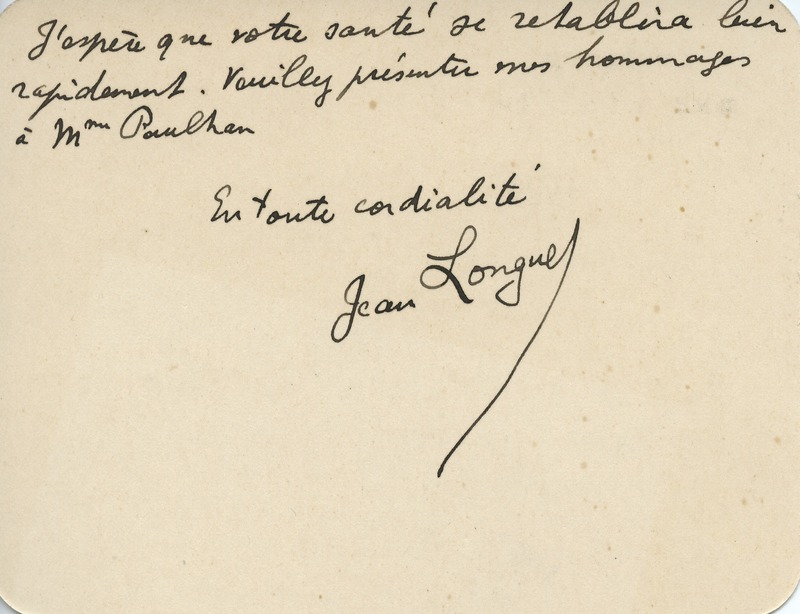 J'espère que votre santé se retablira bien
rapidement. Veuillez présenter mes hommages
à Mme Paulhan
En toute cordialité
Jean Longuet